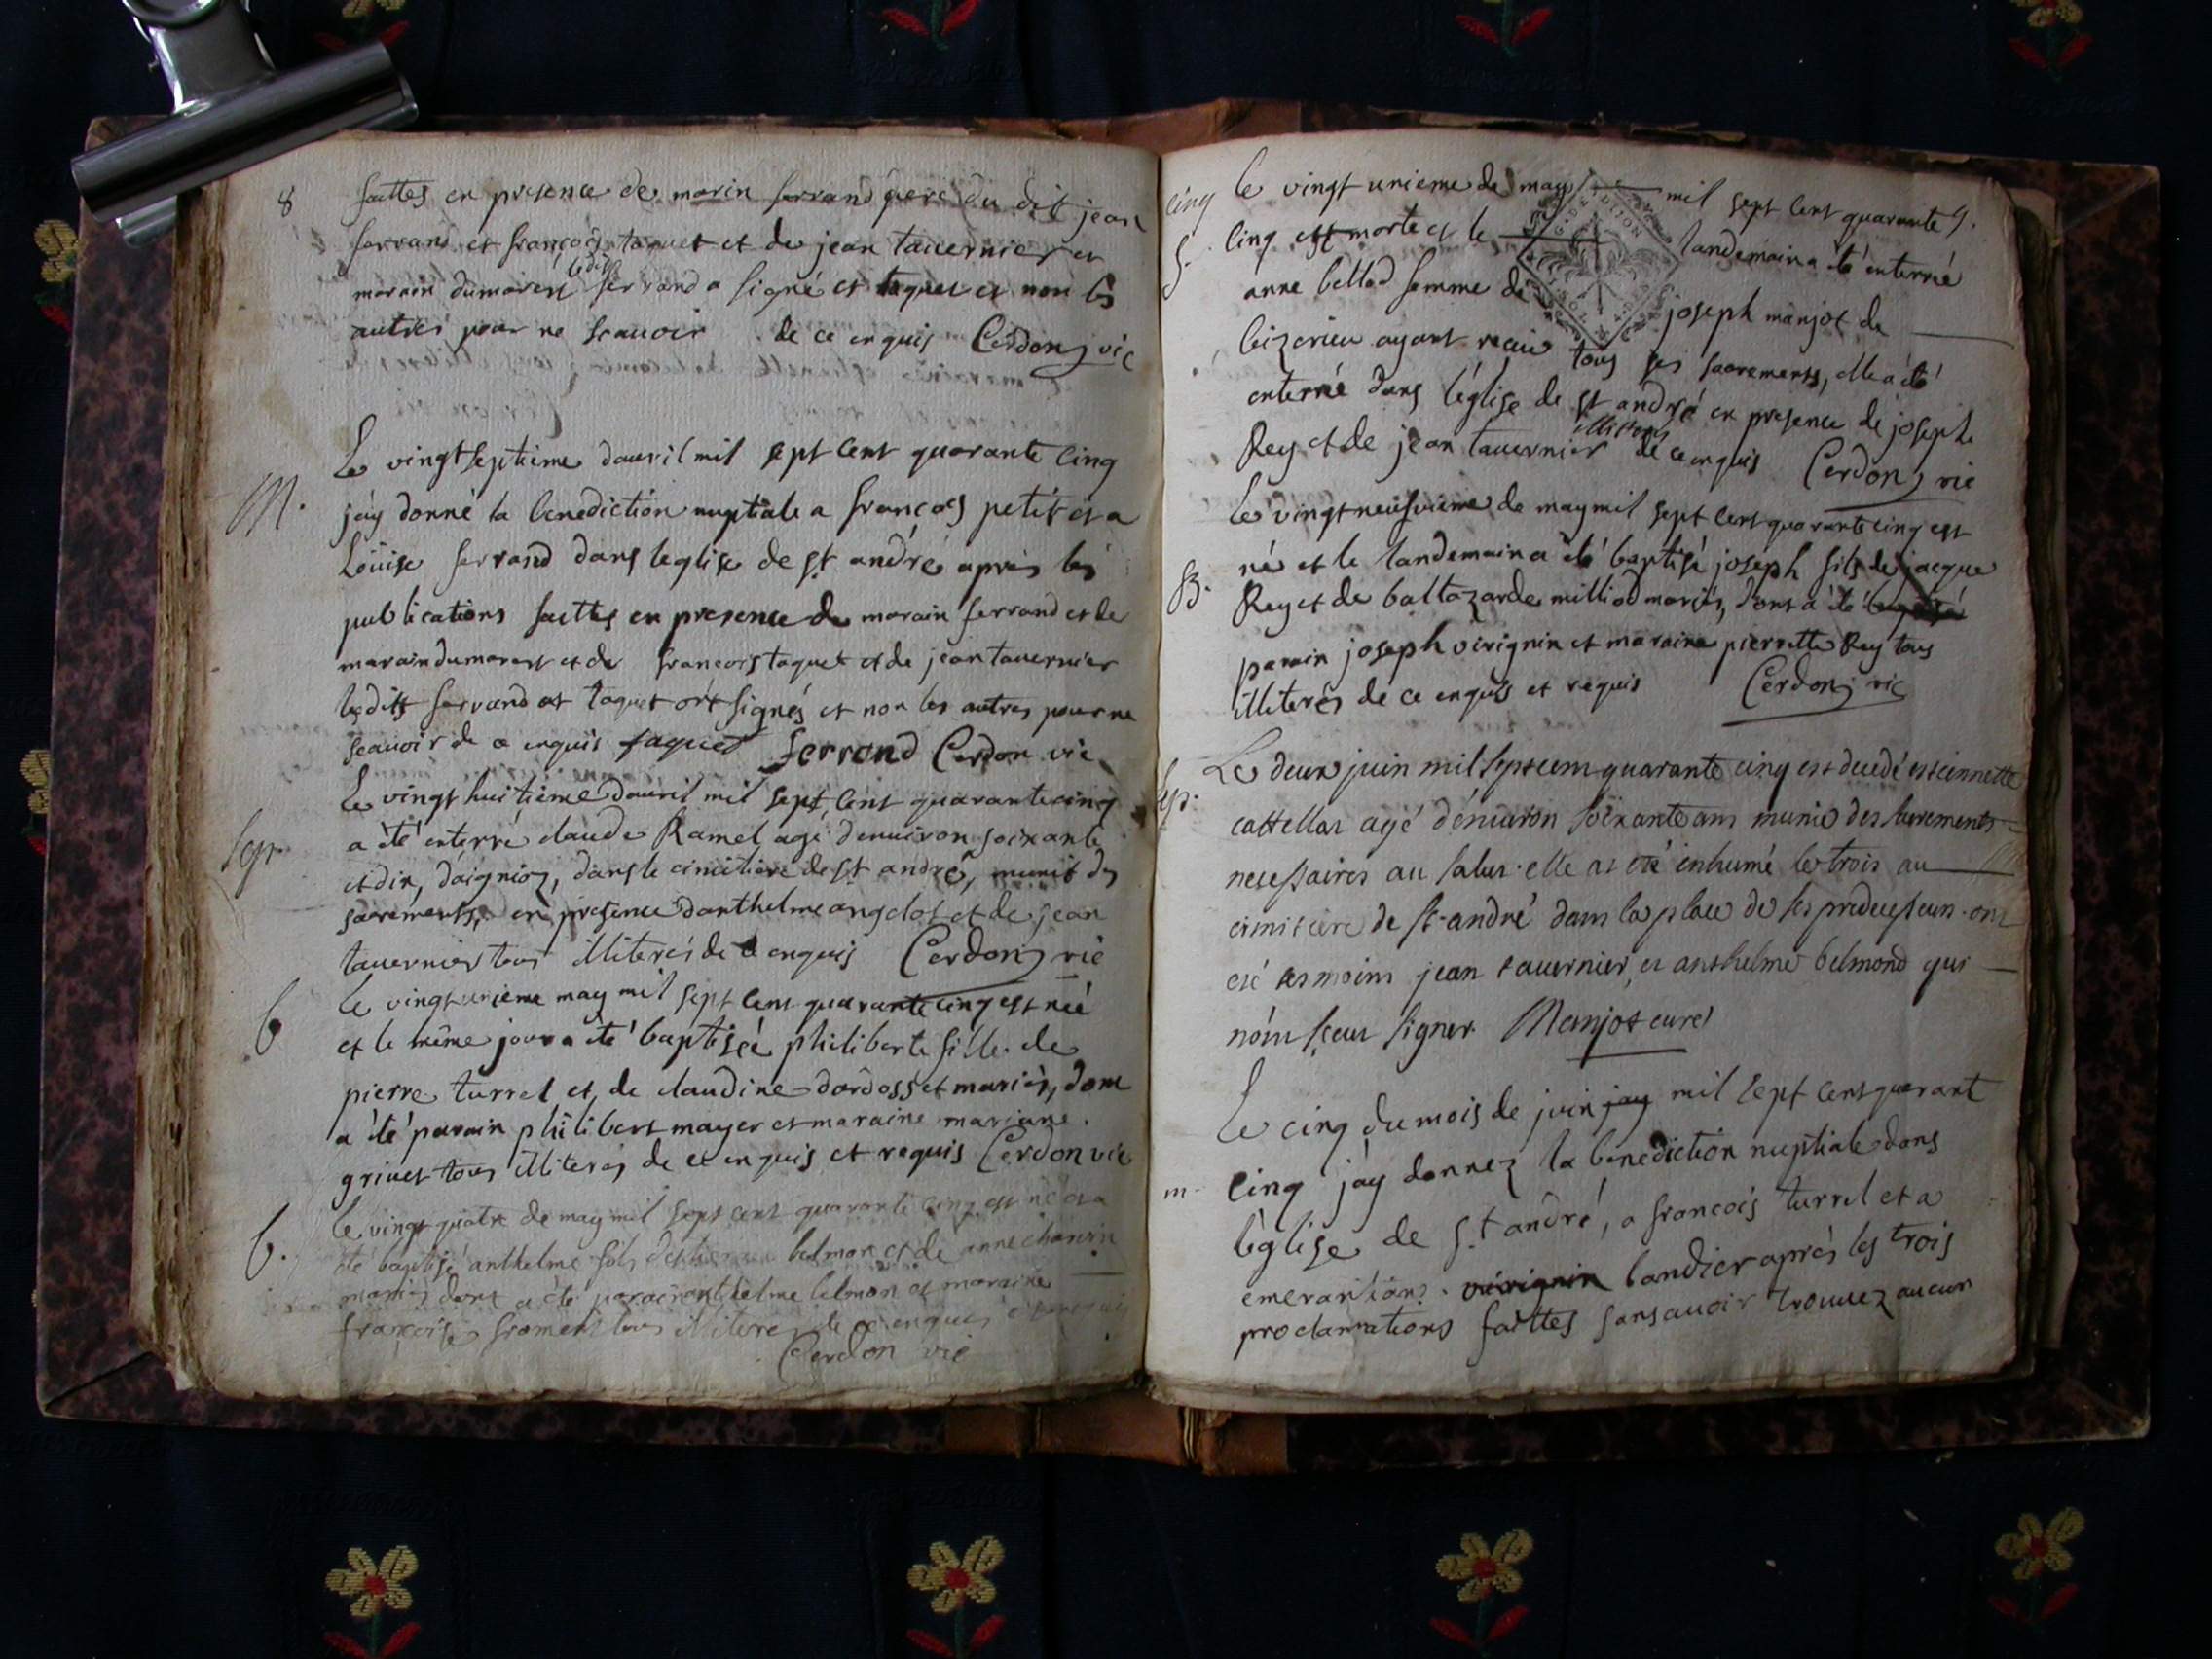 8
faittes en presence de marin ferrand pere du dit jean
ferrand et françois taquet et de jean tavernier et
marain dumarest ledit ferrand a signé et taquet et non les
autres pour ne scavoir de ce enquis Cerdon vic
M.
Le vingt septieme davril mil sept cent quarante cinq
j'ay donné la benediction nuptiale a françois petit et a
Loüise ferrand dans leglise de st andré aprés les
publications faittes en presence de marain ferrand et de
marain dumarest et de francois taquet et de jean tavernier
lesdits ferrand et taquet ont signés et non les autres pour ne
scavoir de ce enquis taquet ferrand Cerdon vic
Sep.
Le vingt huitiéme davril mil sept cent quarante cinq
a été enterré claude Ramel agé denviron soixante
et dix, daignioz, dans le cimitiere de st andré, munit des
sacrements, en presence danthelme angelot et de jean
tavernier tous illiterés de ce enquis Cerdon vic
b
Le vingt unieme may mil sept cent quarante cinq est neé
et le même jour a été baptisée philiberte fille de
pierre turrel et de claudine dardosset mariés, dont
a été parain philibert mayer et maraine mariane
grivet tous illiterés de ce enquis et requis Cerdon vic
b.
Le vingt quatre de may mil sept cent quarante cinq est né et a
été baptisé anthelme fils belmon et de anne chanrin
mariés dont a été parain anthelme belmon et maraine
françoise froment tous illiterés de ce enquis et requis
Cerdon vic
cinq le vingt unieme de may mil sept cent quarante
S. cinq est morte et le landemain a été enterrié
anne bellod femme de joseph manjot de
bizerieu ayant reciu tous ses sacrements, elle a été
enterrié dans l'église de st andré en presence de joseph
Rey et de jean tavernier illiterés de ce enquis Cerdon vic
Le vingt neufvieme de may mil sept cent quarante cinq est
né et le landemain a été baptisé joseph fils de jacque
B. Rey et de baltazarde milliod mariés, dont a été baptisé
parain joseph virignin et maraine pierrette Rey tous
illiterés de ce enquis et requis Cerdon vic
Sep. Le deux juin mil sept cem quarante cinq est decedé estiennette
castellar agé d'enviròn soixante ans munie des sacrements
necessaires au salut. elle as eté inhumé le trois au
cimitiere de st andré dans la place de ses predecesseurs. ont
eté tesmoins jean tavernier, et anthelme belmond qui
n'ont sceu signer. Manjot curé
Le cinq du mois de juin jay mil sept cent quarant
m. cinq j'ay donnez la benediction nuptiale dans
l'église de st andré, a françois turrel et a
emerantiane. virignin bandier aprés les trois
proclamations faittes sans avoir trouvez aucun